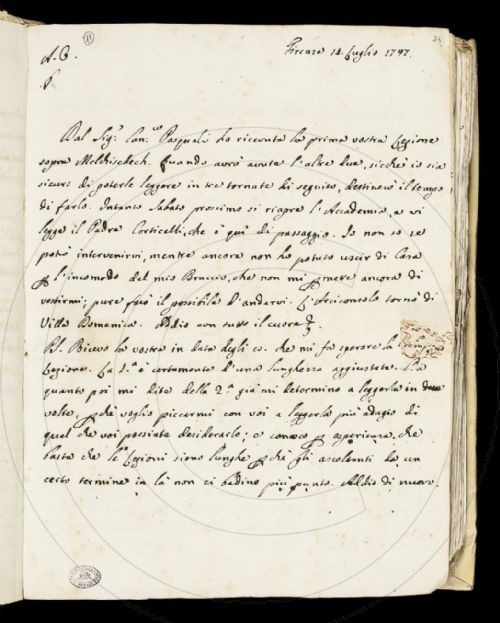 A. C.
(11)
Firenze 14. Luglio 1747.
24
Dal Sig.r Can.co Pasquali ho ricevuta la prima vostra Lezione
sopra Melchisedech. Quando avrò avute l'altre due, sicchè io sia
sicuro di poterle leggere in tre tornate di seguito, destinerò il tempo
di farlo. Intanto Sabato prossimo si riapre l'Accademia, e vi
legge il Padre Corticelli, che è quì di passaggio. Io non so se
potrò intervenirvi, mentre ancora non ho potuto uscir di Casa
p l'incomodo del mio Braccio, che non mi pmette ancora di
vestirmi; pure farò il possibile d'andarvi. L'Arciconsolo tornò di
Villa Domenica. Addio con tutto il cuore
P.S. Ricevo la vostra in data degli 10. che mi fa sperare la
Lezione. La 1.a è certamente d'una lunghezza aggiustata.
quanto poi mi dite della 2.a già mi determino a leggerla in due
volte, pchè voglio piccarmi con voi a leggerla più adagio di
quel che voi possiate desiderarlo; e conosco p esperienza, che
basta che le Lezioni siano lunghe pchè gli ascoltanti da un
certo termine in là non ci badino più punto. Addio di nuovo.